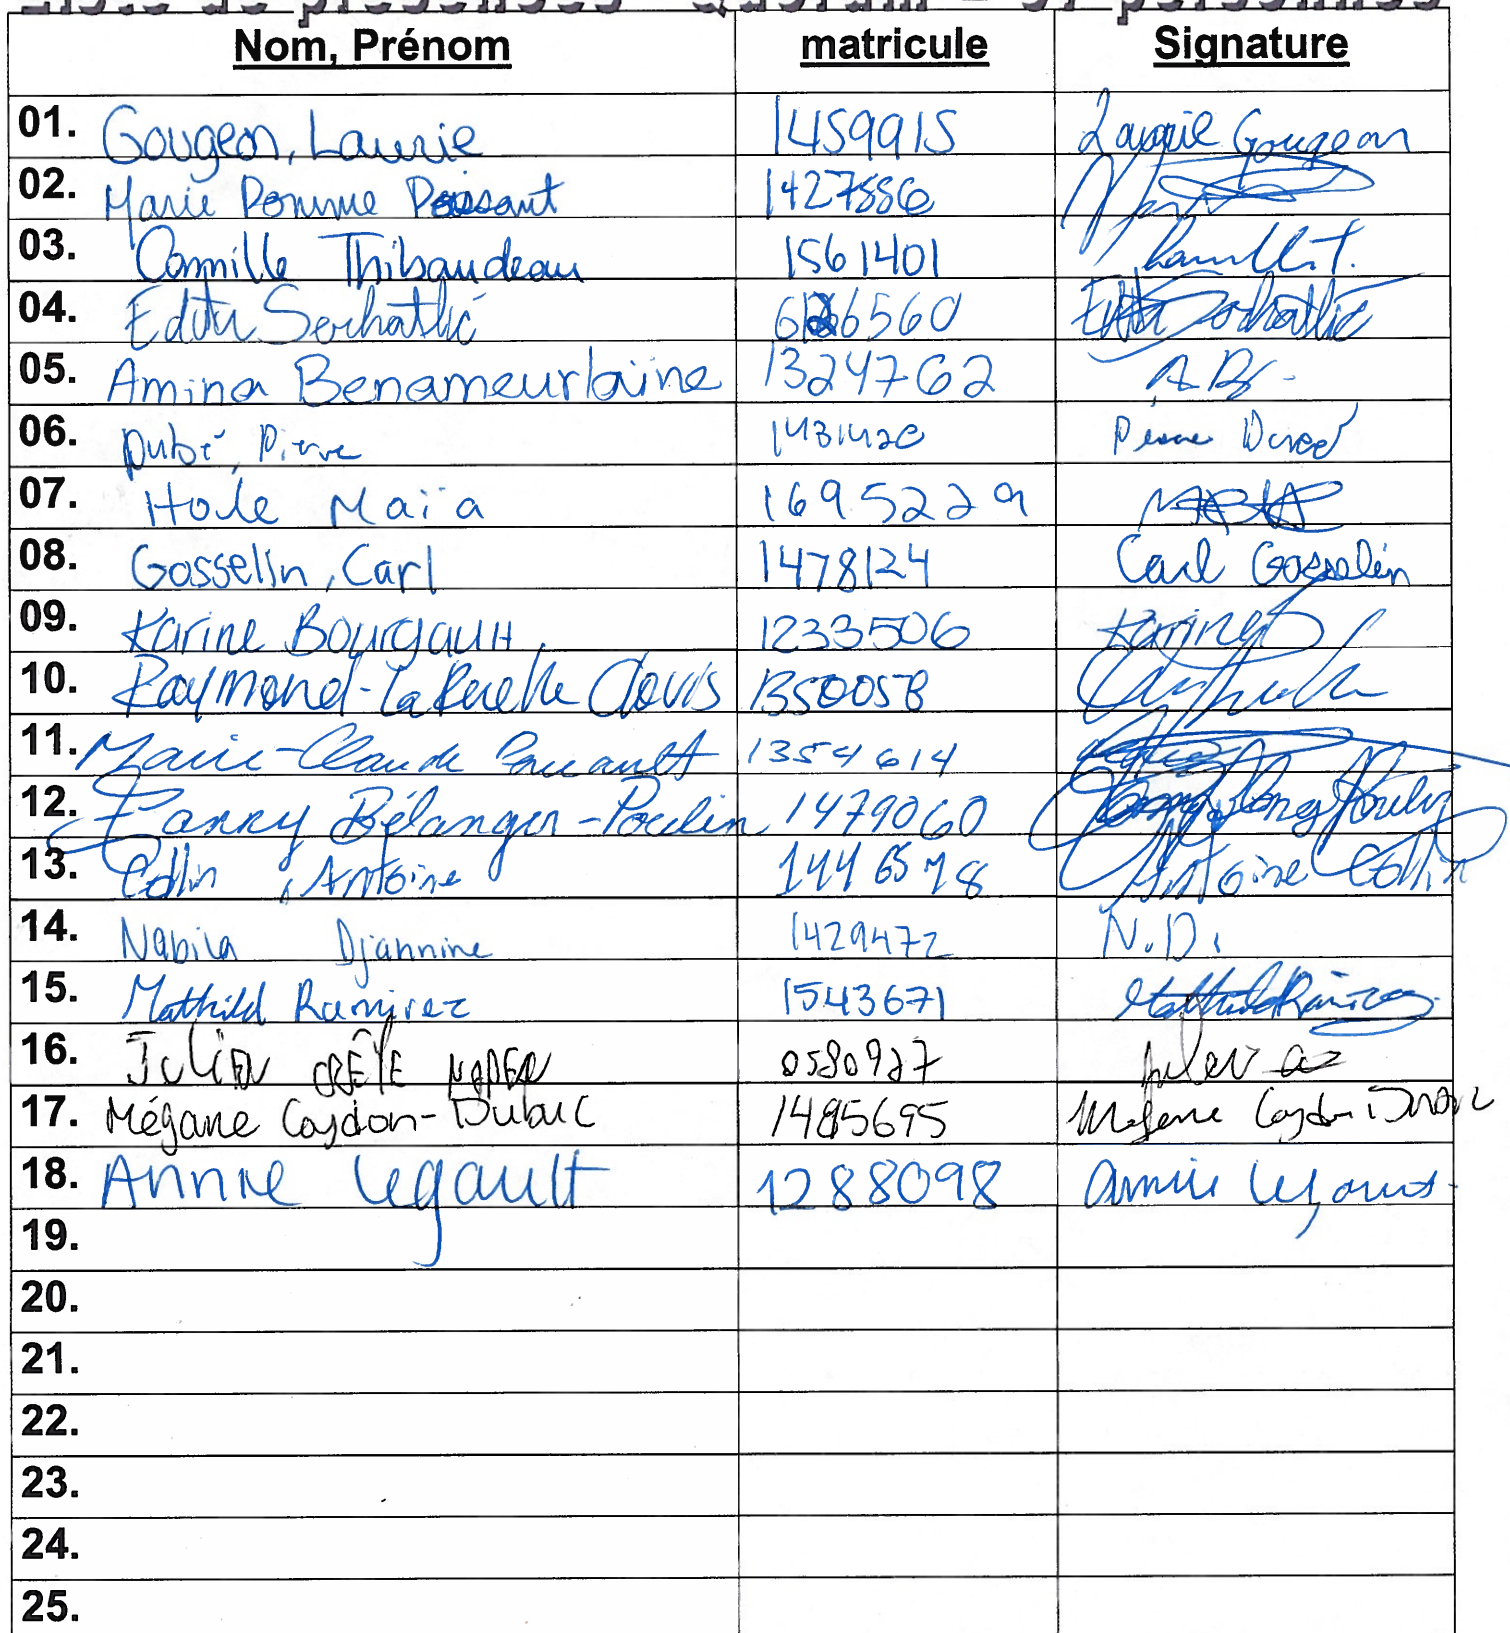 Liste de présences Quorum = 57 personnes
Nom, Prénom matricule Signature
01. Gougeon, Laurie 1459915 Laurie Gougeon
02. Marie Pomme Poissant 1427556
03. Camille Thibaudeau 1561401 Camille T.
04. Edith 6126560 Edith
05. Amina Benameurlaine 1324762 A.B.
06. Dubé, Pierre 1431420 Pierre Dubé
07. Hole Maïa 1695229
08. Gosselin, Carl 1478124 Carl Gosselin
09. Karine Bourgault 1233506 Karine B
10. Raymond-LaRuelle Clovis 1350058
11. Marie-Claude 1354614
12. Fanny Bélanger-Poulin 1479060
13. Collin, Antoine 1446578 Antoine Collin
14. Nabila Djannine 1429472 N.D.
15. Mathild Ramirez 1543671 Mathild Ramirez
16. JULIEN CRÊTE NADEAU 0580927
17. Mégane Coydon-Dubuc 1485695 Mégane Coydon-Dubuc
18. Annie Legault 1288098 Annie Legault
19.
20.
21.
22.
23.
24.
25.